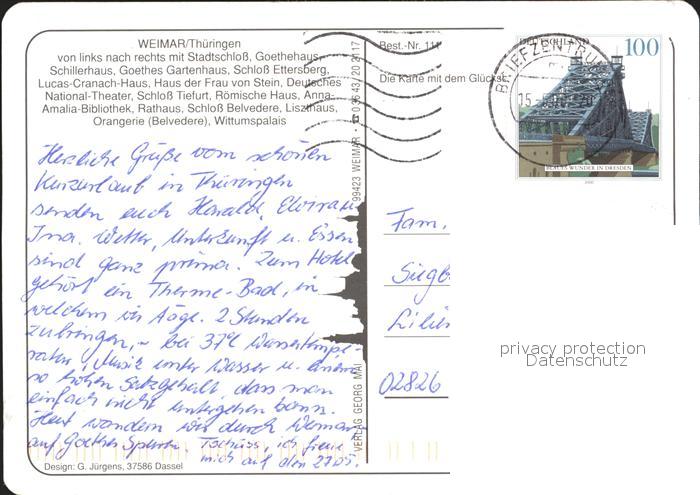 WEIMAR/Thüringen
von links nach rechts mit Stadtschloß, Goethehaus,
Schillerhaus, Goethes Gartenhaus, Schloß Ettersberg,
Lucas-Cranach-Haus, Haus der Frau von Stein, Deutsches
National-Theater, Schloß Tiefurt, Römische Haus, Anna-
Amalia-Bibliothek, Rathaus, Schloß Belvedere, Liszthaus,
Orangerie (Belvedere), Wittumspalais
Herzliche Grüße vom schönen
Kurzurlaub in Thüringen
senden euch Harald, Elvira u.
Ina. Wetter, Unterkunft u. Essen
sind ganz prima. Zum Hotel
gehört ein Therme-Bad, in
welchem wir tägl. 2 Stunden
zubringen, - bei 37°C Wassertempe-
ratur, Musik unter Wasser u. einem
so hohen Salzgehalt, dass man
einfach nicht untergehen kann.
Heut wandern wir durch Weimar
auf Goethes Spuren. Tschüss, ich freue
mich auf den 27.05.
Design: G. Jürgens, 37586 Dassel
VERLAG GEORG MAI 99423 WEIMAR 03643/202117
Best.-Nr. 111
Die Karte mit dem Glückst
DEUTSCHLAND
100
BRIEFZENTRUM
BLAUES WUNDER IN DRESDEN
2000
Fam.
Siegb
Lilien
02826
privacy protection
Datenschutz